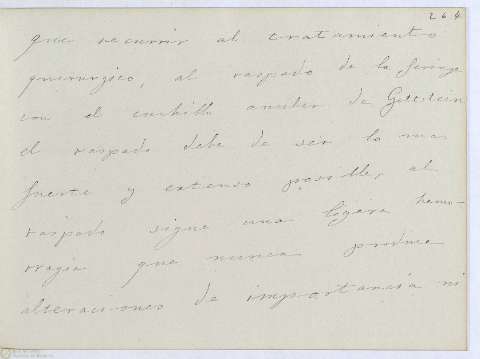 264
que recurrir al tratamiento
quirurgico, al raspado de la faringe
con el cuchillo de Gottstein
el raspado debe de ser lo mas
fuerte y extenso posible, al
raspado sigue una ligera hemo-
rragia que nunca produce
alteraciones de importancia ni